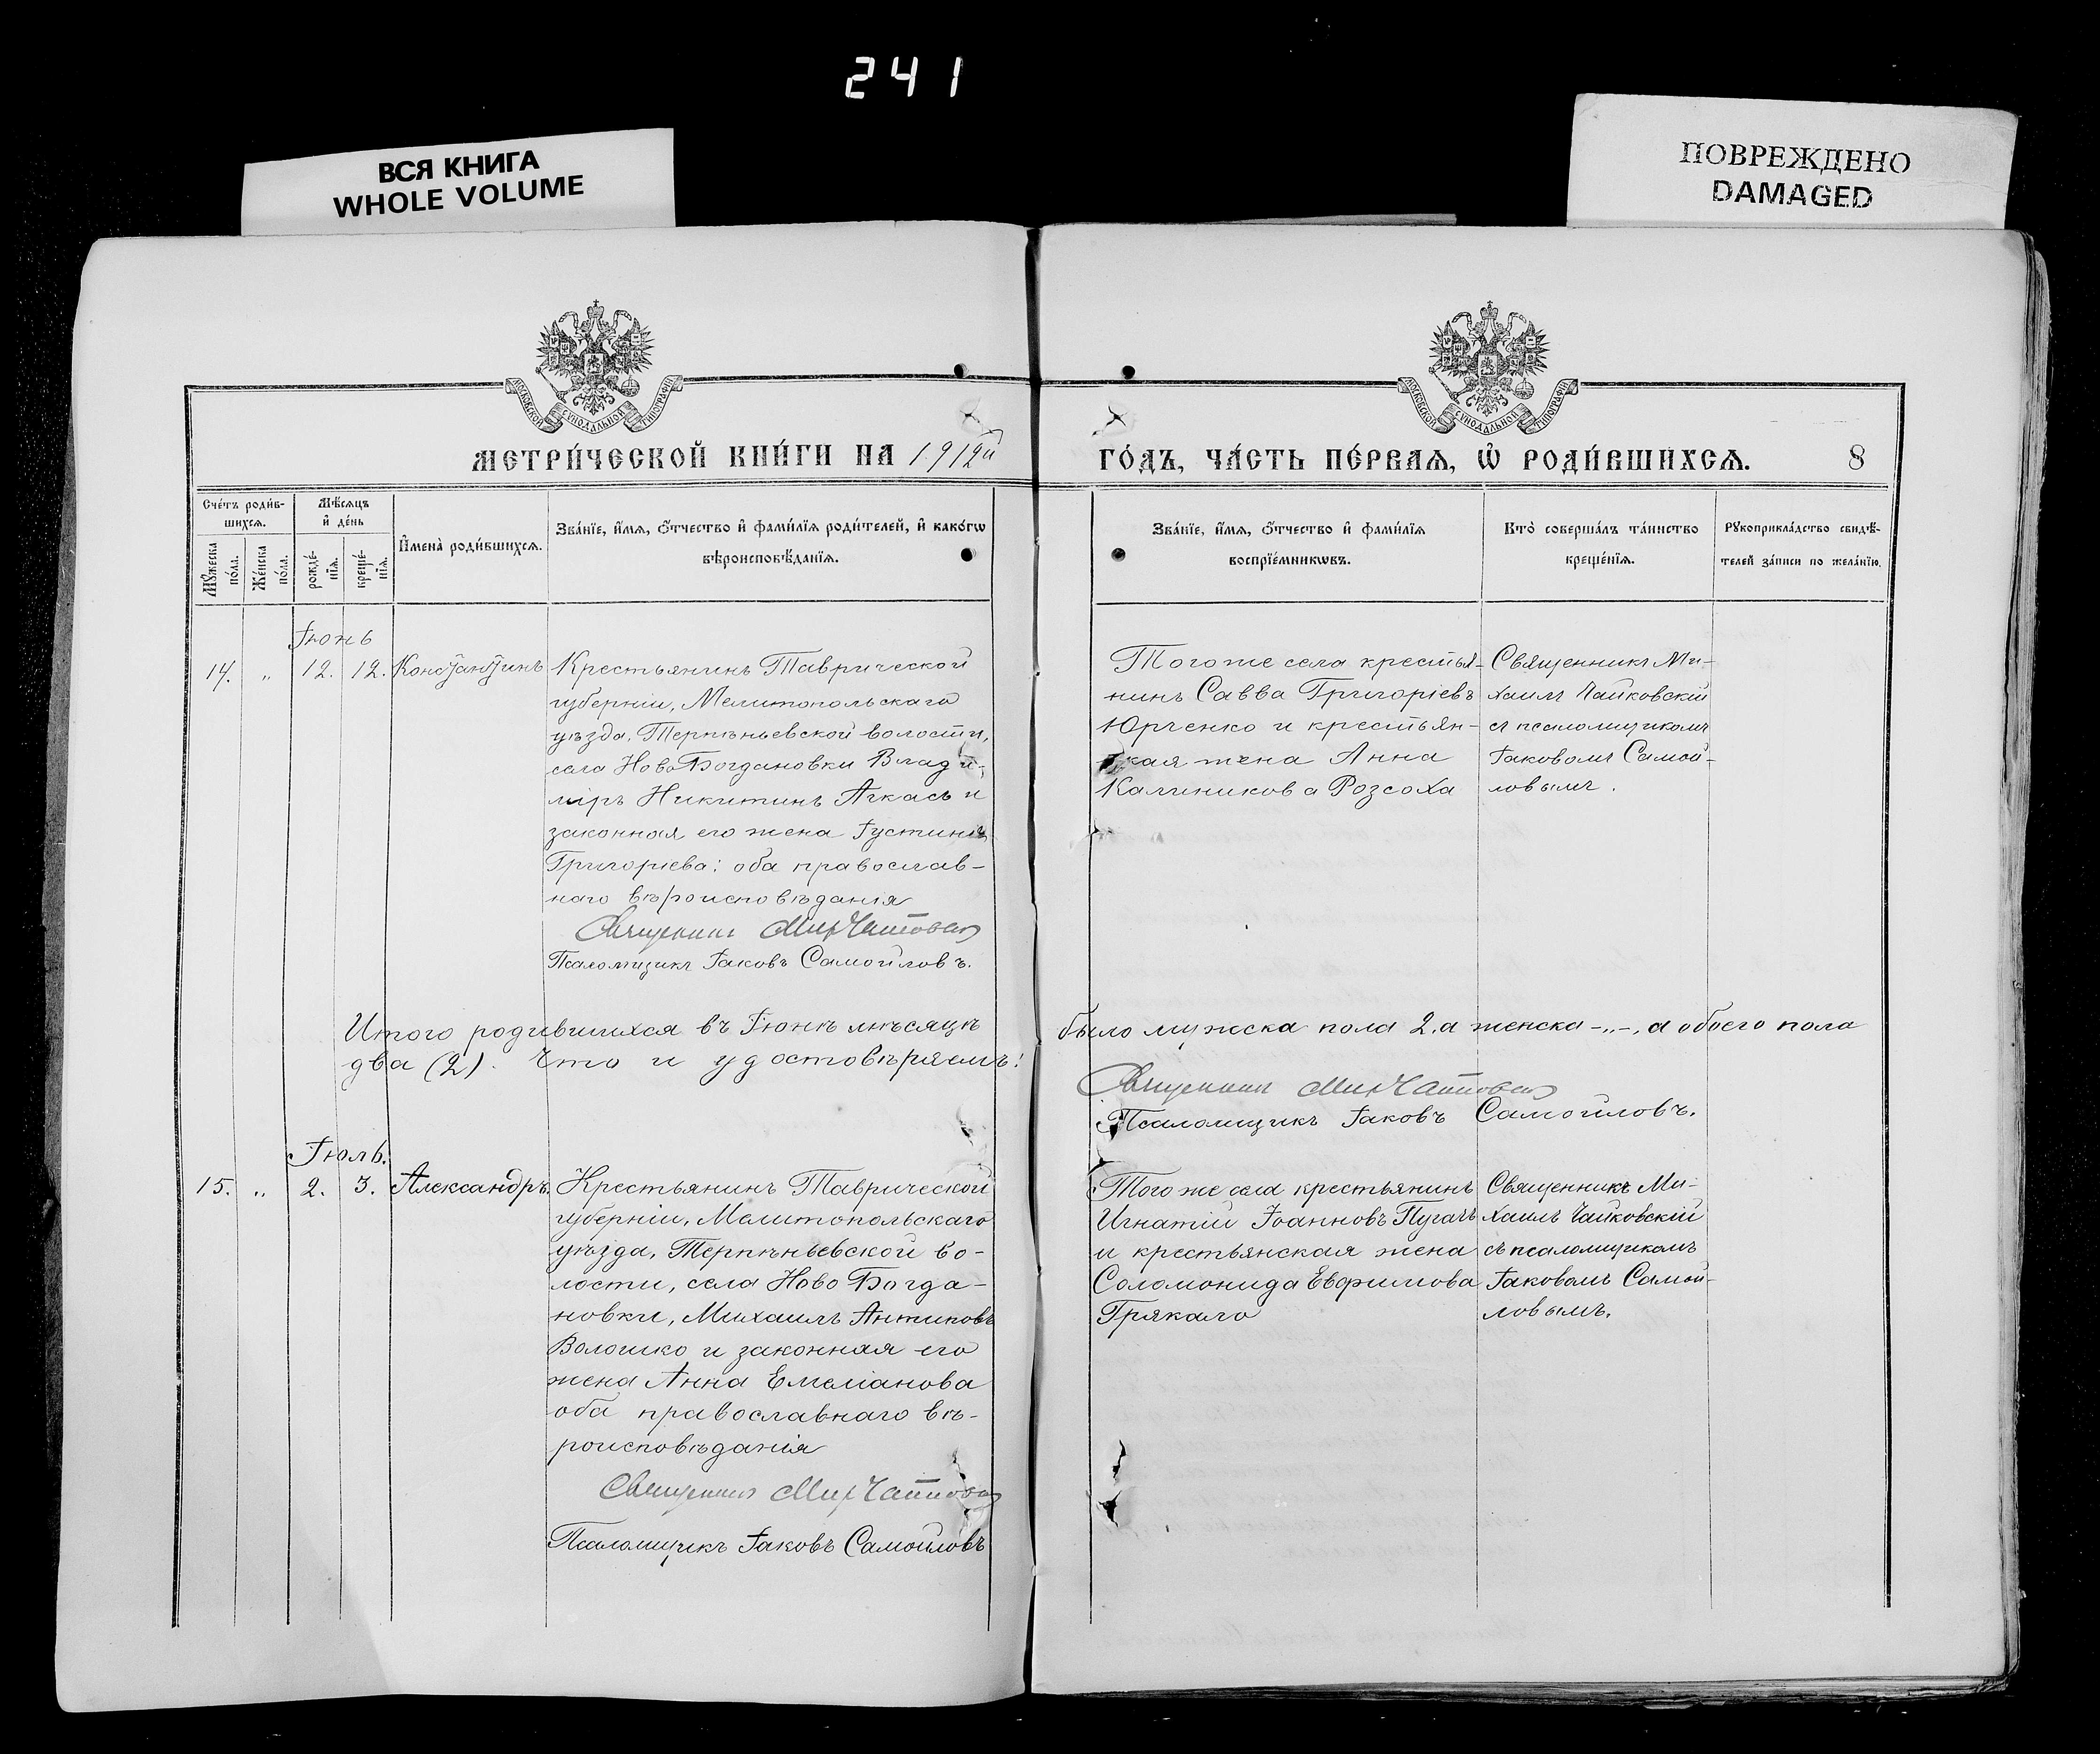 241
ВСЯ КНИГА
WHOLE VOLUME
ПОВРЕЖДЕНО
DAMAGED
МОСКОВСКОЙ СѴНОДАЛЬНОЙ ТИПОГРАФІИ
МОСКОВСКОЙ СѴНОДАЛЬНОЙ ТИПОГРАФІИ
МЕТРИ́ЧЕСКОЙ КНИ́ГИ НА 1912й
ГО́ДЪ, ЧА́СТЬ ПЕ́РВАЯ, Ѡ҆ РОДИ́ВШИХСЯ.
8
Сче́тъ роди́в-
шихся.
Мѣ́сяцъ
и҆ де́нь
Мꙋ́жеска
по́ла.
Же́нска
по́ла.
рожде́-
нїя.
креще́-
нїя.
И҆мена̀ роди́вшихся.
Зва́нїе, и҆́мя, ѻ҆́тчество и҆ фами́лїя роди́телей, и҆ како́гѡ
вѣроисповѣ́данїя.
Зва́нїе, и҆́мя, ѻ҆́тчество и҆ фами́лїя
воспрїе́мникѡвъ.
Кто̀ соверша́лъ та́инство
креще́нїя.
Рꙋкоприкла́дство свидѣ́-
телей за́писи по жела́нїю.
Іюнь
14. „ 12. 12. Константинъ
Крестьянинъ Таврической
губерніи, Мелитопольскаго
уѣзда, Терпѣньевской волости,
села Ново Богдановки Влади-
міръ Никитинъ Ачкасъ и
законная его жена Іустина
Григоріева: оба православ-
наго вѣроисповѣданія
Священникъ Мих Чайковскій
Псаломщикъ Іаковъ Самойловъ.
Того же села крестья-
нинъ Савва Григоріевъ
Юрченко и крестьян-
ская жена Анна
Калиникова Розсоха
Священникъ Ми-
хаилъ Чайковскій
съ псаломщикомъ
Іаковомъ Самой-
ловымъ.
Итого родившихся въ Іюнѣ мѣсяцѣ было мужска пола 2, а женска -„-, а обоего пола
два (2). Что и удостовѣряемъ:
Священникъ Мих Чайковскій
Псаломщикъ Іаковъ Самойловъ.
Іюль.
15. „ 2. 3. Александръ.
Крестьянинъ Таврической
губерніи, Мелитопольскаго
уѣзда, Терпѣньевской во-
лости, села Ново Богда-
новки, Михаилъ Антиповъ
Волошко и законная его
жена Анна Емеліанова
оба православнаго вѣ-
роисповѣданія
Священникъ Мих Чайковскій
Псаломщикъ Іаковъ Самойловъ
Того же села крестьянинъ
Игнатій Іоанновъ Пугачъ
и крестьянская жена
Соломонида Евфимова
Грякало
Священникъ Ми-
хаилъ Чайковскій
съ псаломщикомъ
Іаковомъ Самой-
ловымъ.